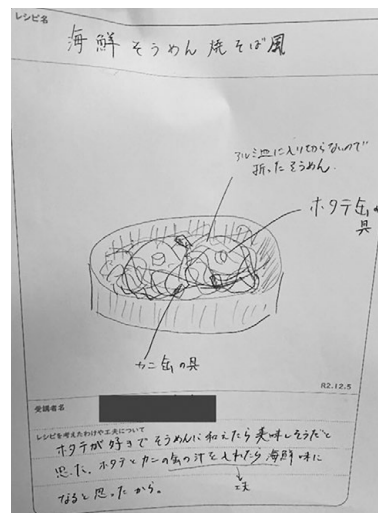 レシピ名
海鮮そうめん焼そば風
アルミ皿に入りきらないので
折ったそうめん.
ホタテ缶の
具
カニ缶の具
R2.12.5
受講者名
レシピを考えたわけや工夫について
ホタテが好きでそうめんに和えたら美味しそうだと
思った。ホタテとカニの缶の汁を入れたら海鮮味に
なると思ったから。
工夫